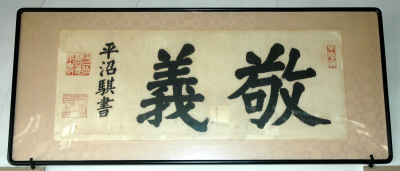 敬義
平沼騏書